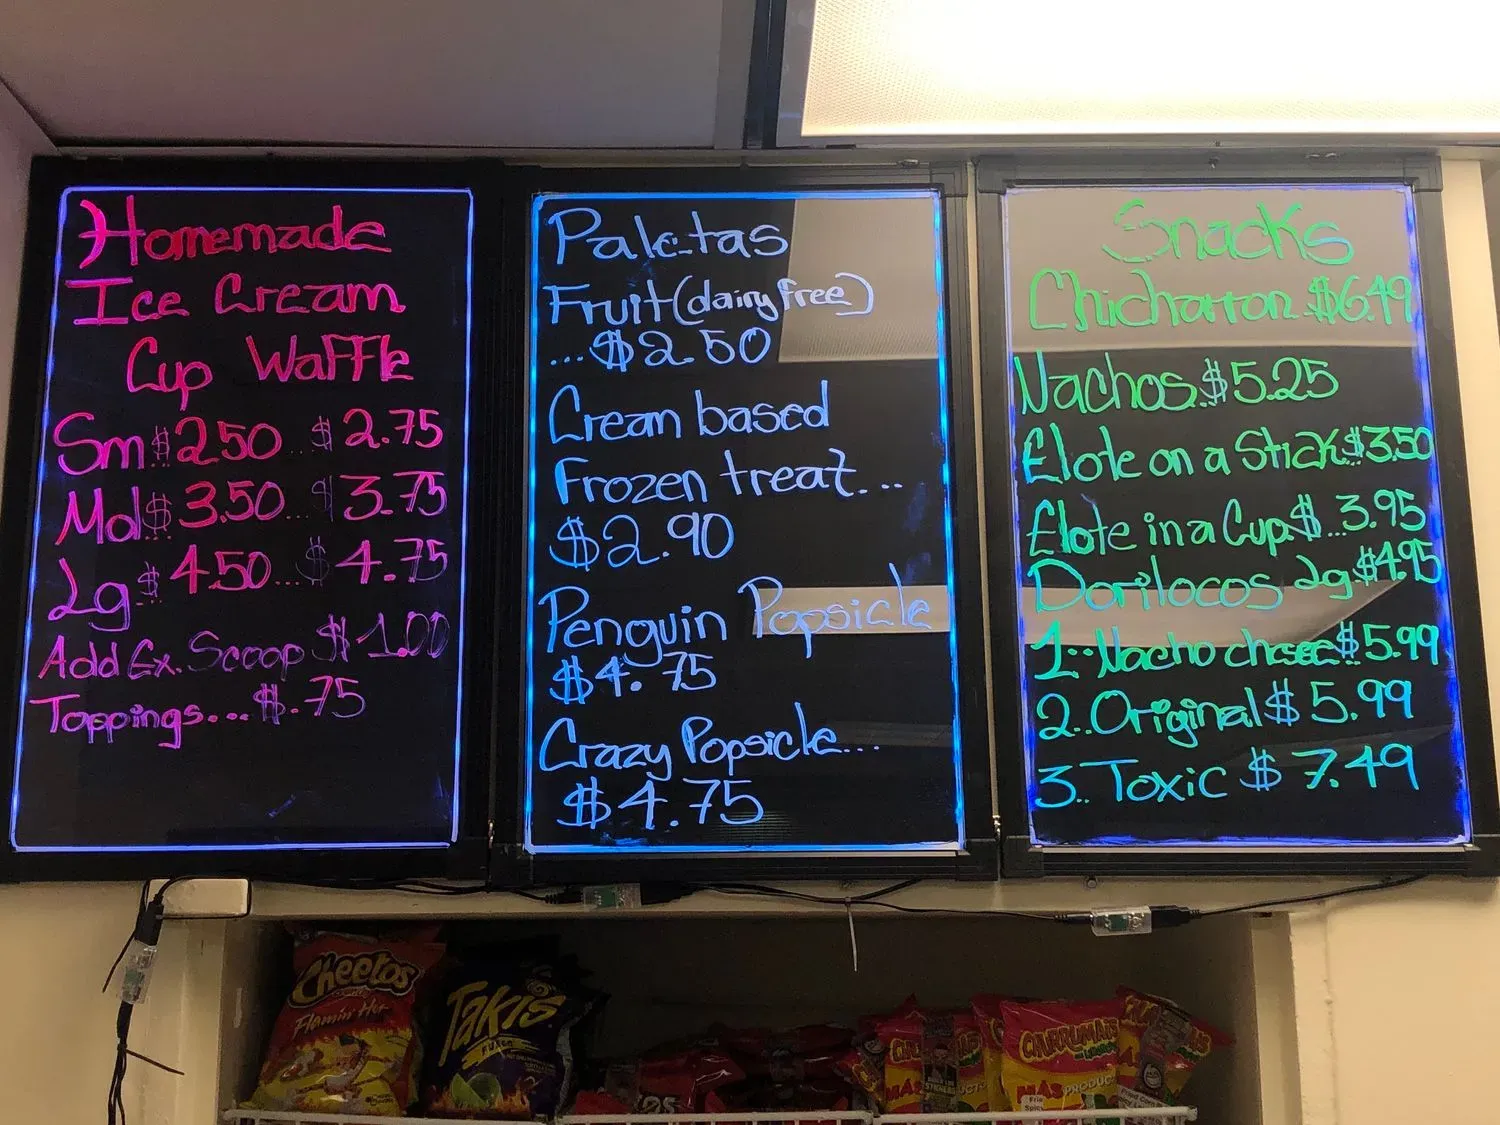 Homemade
Ice Cream
Cup Waffle
Sm $2.50...$2.75
Md $3.50...$3.75
Lg $4.50...$4.75
Add Ex. Scoop $1.00
Toppings....$.75
Paletas
Fruit (dairy free)
...$2.50
Cream based
Frozen treat...
$2.90
Penguin Popsicle
$4.75
Crazy Popsicle...
$4.75
Snacks
Chicharron.$6.49
Nachos.$5.25
Elote on a Stick $3.50
Elote in a Cup.$...3.95
Dorilocos Lg.$4.95
1..Nacho cheese $5.99
2..Original $5.99
3..Toxic $7.49
Cheetos
Flamin' Hot
Takis
FUEGO
CHURRUMAIS
MÁS PRODUC